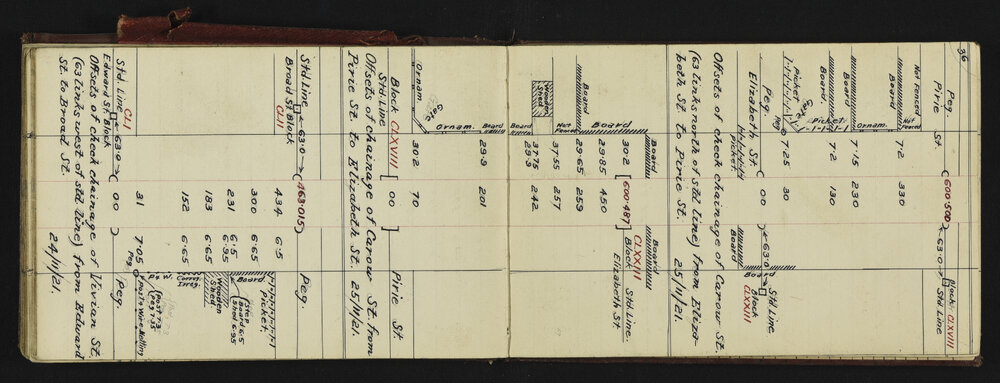 36
Peg. Block CLXVIII
Pirie St. (600·500) ←63·0→ Std. Line
Not Fenced Not Fenced
Board 7·2 330
Ornam.
Board 7·15 230
Board. Picket 7·2 130
Gate
Picket 7·25 30
Peg
Peg. Std Line
Elizabeth St. 00 ←63·0→ Block CLXXIII
Picket. Board
Offsets of check chainage of Carow St.
(63 links north of std line) from Eliza-
beth St. to Pirie St. 25/11/21.
Board Board
30·2 [600·487] CLXXIII Std Line.
Block Elizabeth St.
Board 29·85 450
Board 29·65 259
Not Fenced 37·55 257
Wooden Shed 37·75 242
Board 29·9
Board 29·9 201
Ornam.
Gate
Ornam. 30·2 70
Block CLXVIII [ 00 ] Pirie St.
Std Line
Offsets of chainage of Carow St. from
Pirie St. to Elizabeth St. 25/11/21.
Std Line ←63·0→ (463·015) Peg.
Broad St Block
CLII
434 6·5 Picket.
300 6·65 Board.
231 6·5 Step
6·95 Board 6·5 Shed 6·95
183 6·65 Wooden Shed
152 6·65 Corrug. Iron.
P. & W.
31 7·05 Post 7·3
Peg Peg 7·35
Post & Wire Netting
CLI
Std. Line ←63·0→ ( 00 ) Peg.
Edward St Block
Offsets of check chainage of Vivian St.
(63 links west of std line) from Edward
St. to Broad St. 24/11/21.